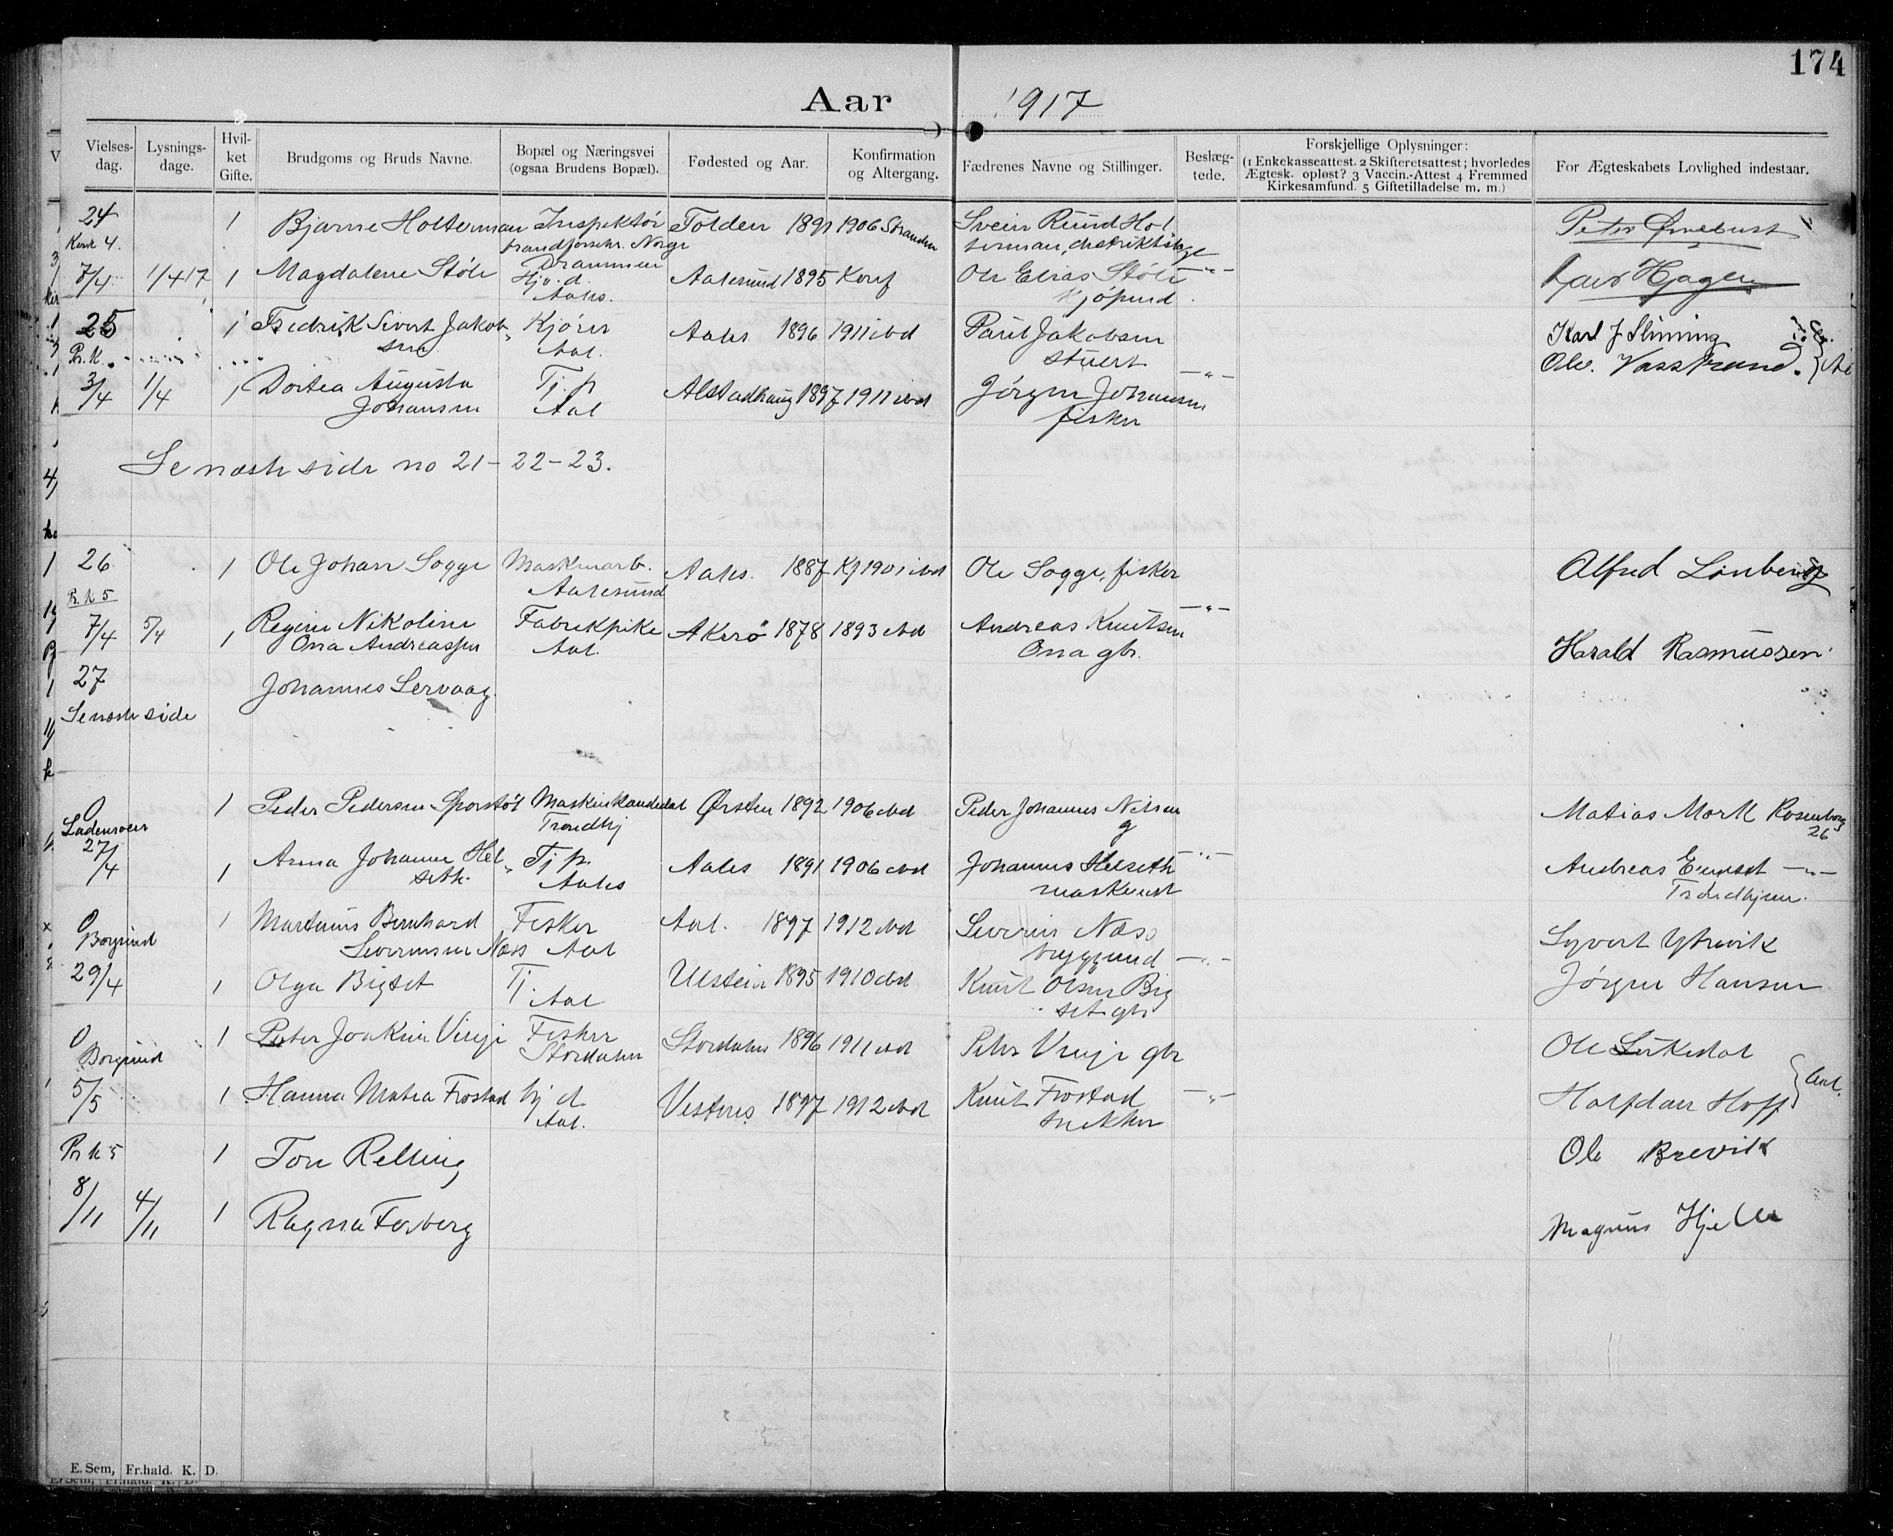 174
Aar 1917
Vielses-dag. Lysnings-dage. Hvil-ket Gifte. Brudgoms og Bruds Navne. Bopæl og Næringsvei (ogsaa Brudens Bopæl). Fødested og Aar. Konfirmation og Altergang. Fædrenes Navne og Stillinger. Beslæg-tede. Forskjellige Oplysninger: (1 Enkekasseattest. 2 Skifteretsattest; hvorledes Ægtesk. opløst? 3 Vaccin.-Attest 4 Fremmed Kirkesamfund. 5 Giftetilladelse m. m.) For Ægteskabets Lovlighed indestaar.
24 1 Bjarne Holterman Inspektør Folden 1891 1906 Stranden Svein Ruud Hol
4. brandforsikr. Norge terman, distriktslæge
Drammen
7/4 1/4 17 1 Magdalene Støle Hjv. d. Aalesund 1895 Konf Ole Elias Støle -"- Hagen
Aales. kjøpmd
25 1 Fredrik Sivert Jakob- Kjører Aales 1896 1911 ibd Paul Jakobsen Karl J Sliming
Pr. K. sen Aal. stuert Ole. Vasstrand.
3/4 1/4 1 Dortea Augusta Tj. p Alstadhaug 1897 1911 ibd Jørgen Johansen -"-
Johansen Aal fisker
Se næste side no 21-22-23.
26 1 Ole Johan Sogge Maskinarb. Aales. 1887 Kf 1901 ibd Ole Sogge, fisker Alfred Linberg
Pr. k 5 Aalesund
7/4 5/4 1 Regine Nikoline Fabrikpike Akerø 1878 1893 ibd Andreas Knutsen -"- Harald Rasmussen
Ona Andreassen Aal. Ona gbr.
27 Johannes Servaag
Se næste side
O 1 Peder Pedersen Maskinkandidat Ørsten 1892 1906 ibd Peder Johannes Nilsen Matias Mork Rosenborg
Lademoen Trondhj g 26
27/4 1 Anna Johanne Hel- Tj p. Aales 1891 1906 ibd Johannes Helseth -"- Andreas -"-
seth. Aales maskinist Trondhjem.
O 1 Martinus Bernhard Fisker Aal. 1897 1912 ibd Severin Næss Syvert Ytrevik
Borgund Severinsen Næss Aal byggmd -"-
29/4 1 Olga Bigset Tj. Ulstein 1895 1910 ibd Knut Olsen Big Jørgen Hansen
Aal set gbr
O 1 Peter Joakim Vinje Fisker Stordalen 1896 1911 ibd Peter Vinje gbr Ole Lerkedal
Borgund Stordalen
5/5 1 Hanna Matea Frostad hj d. Vestnes 1897 1912 ibd Knut Frostad -"- Halfdan Hoff Aal.
Aal. snekker
Pr k 5 1 Tore Relling Ole Brevik
8/11 4/11 1 Ragna Forberg Magnus Hjelle
E. Sem, Fr.hald. K. D.